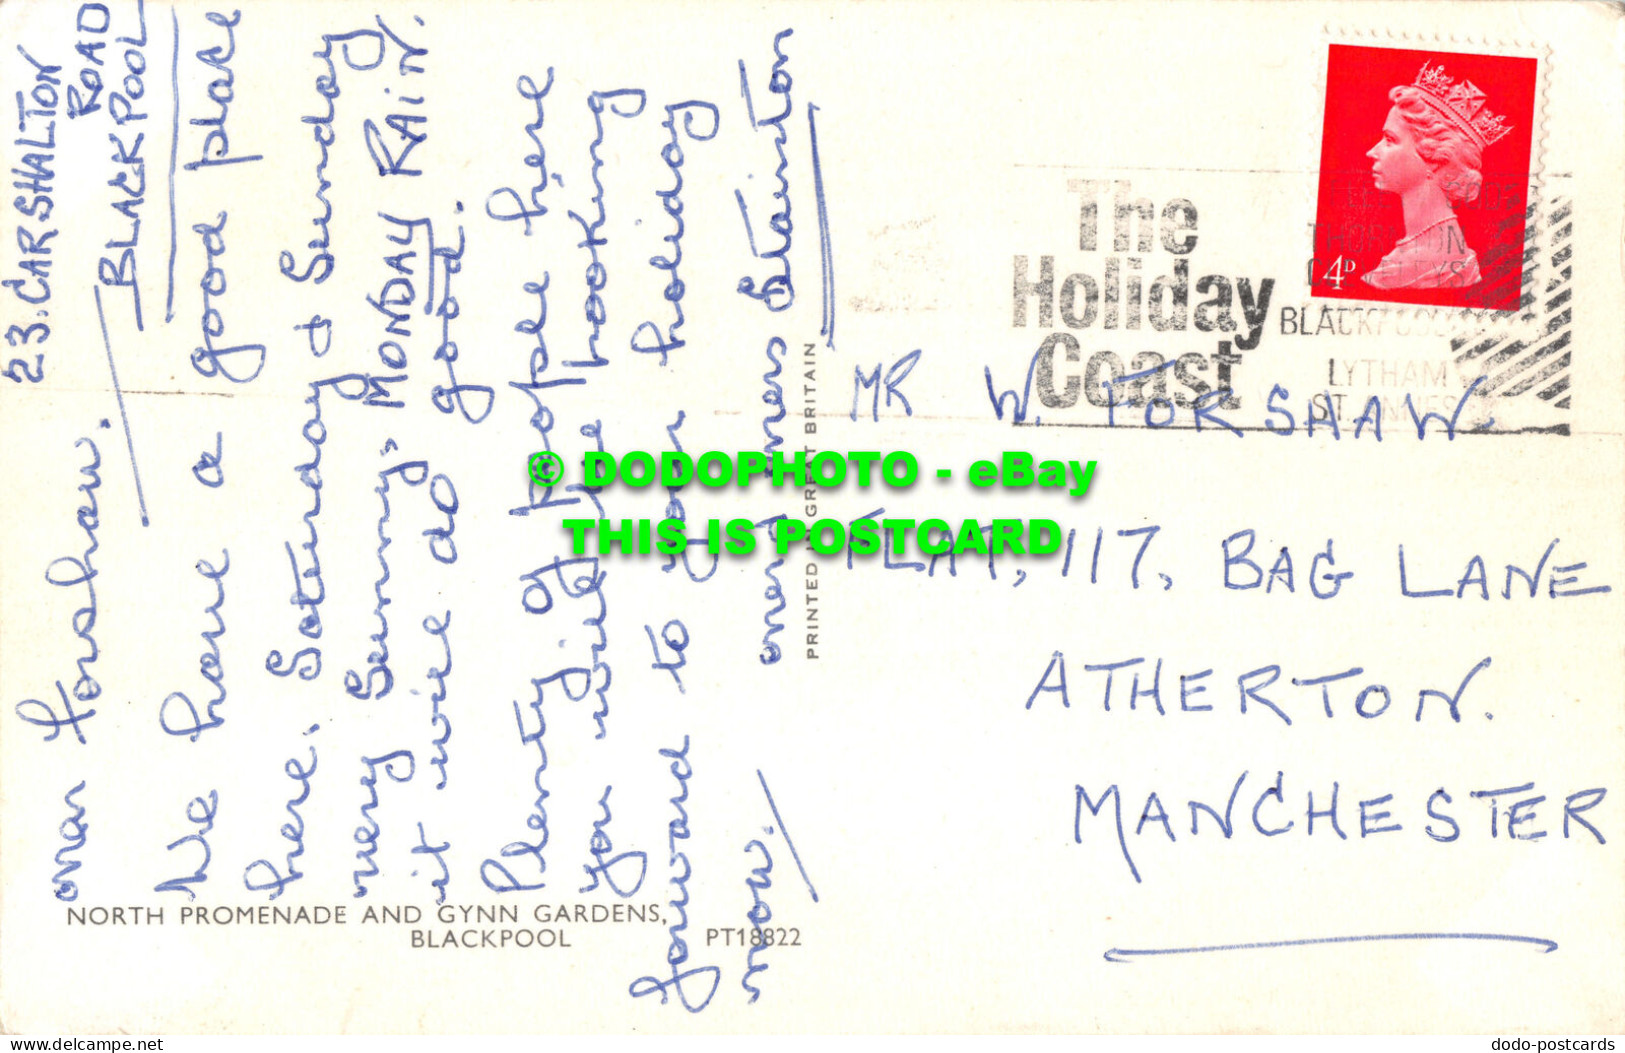 23. CARSHALTON
ROAD
BLACKPOOL
Forshaw.
We have a good place
here. Saterday & Sunday
very Sunny. MONDAY RAIN.
it will do good.
Plenty of people here
you will be looking
forward to your holiday
now.
Stainton
PRINTED IN GREAT BRITAIN
NORTH PROMENADE AND GYNN GARDENS,
BLACKPOOL
PT18822
The
Holiday
Coast
BLACKPOOL
LYTHAM
ST. ANNES
4D
MR W. FORSHAW.
FLAT, 117, BAG LANE
ATHERTON.
MANCHESTER
© DODOPHOTO - eBay
THIS IS POSTCARD
www.delcampe.net
dodo-postcards